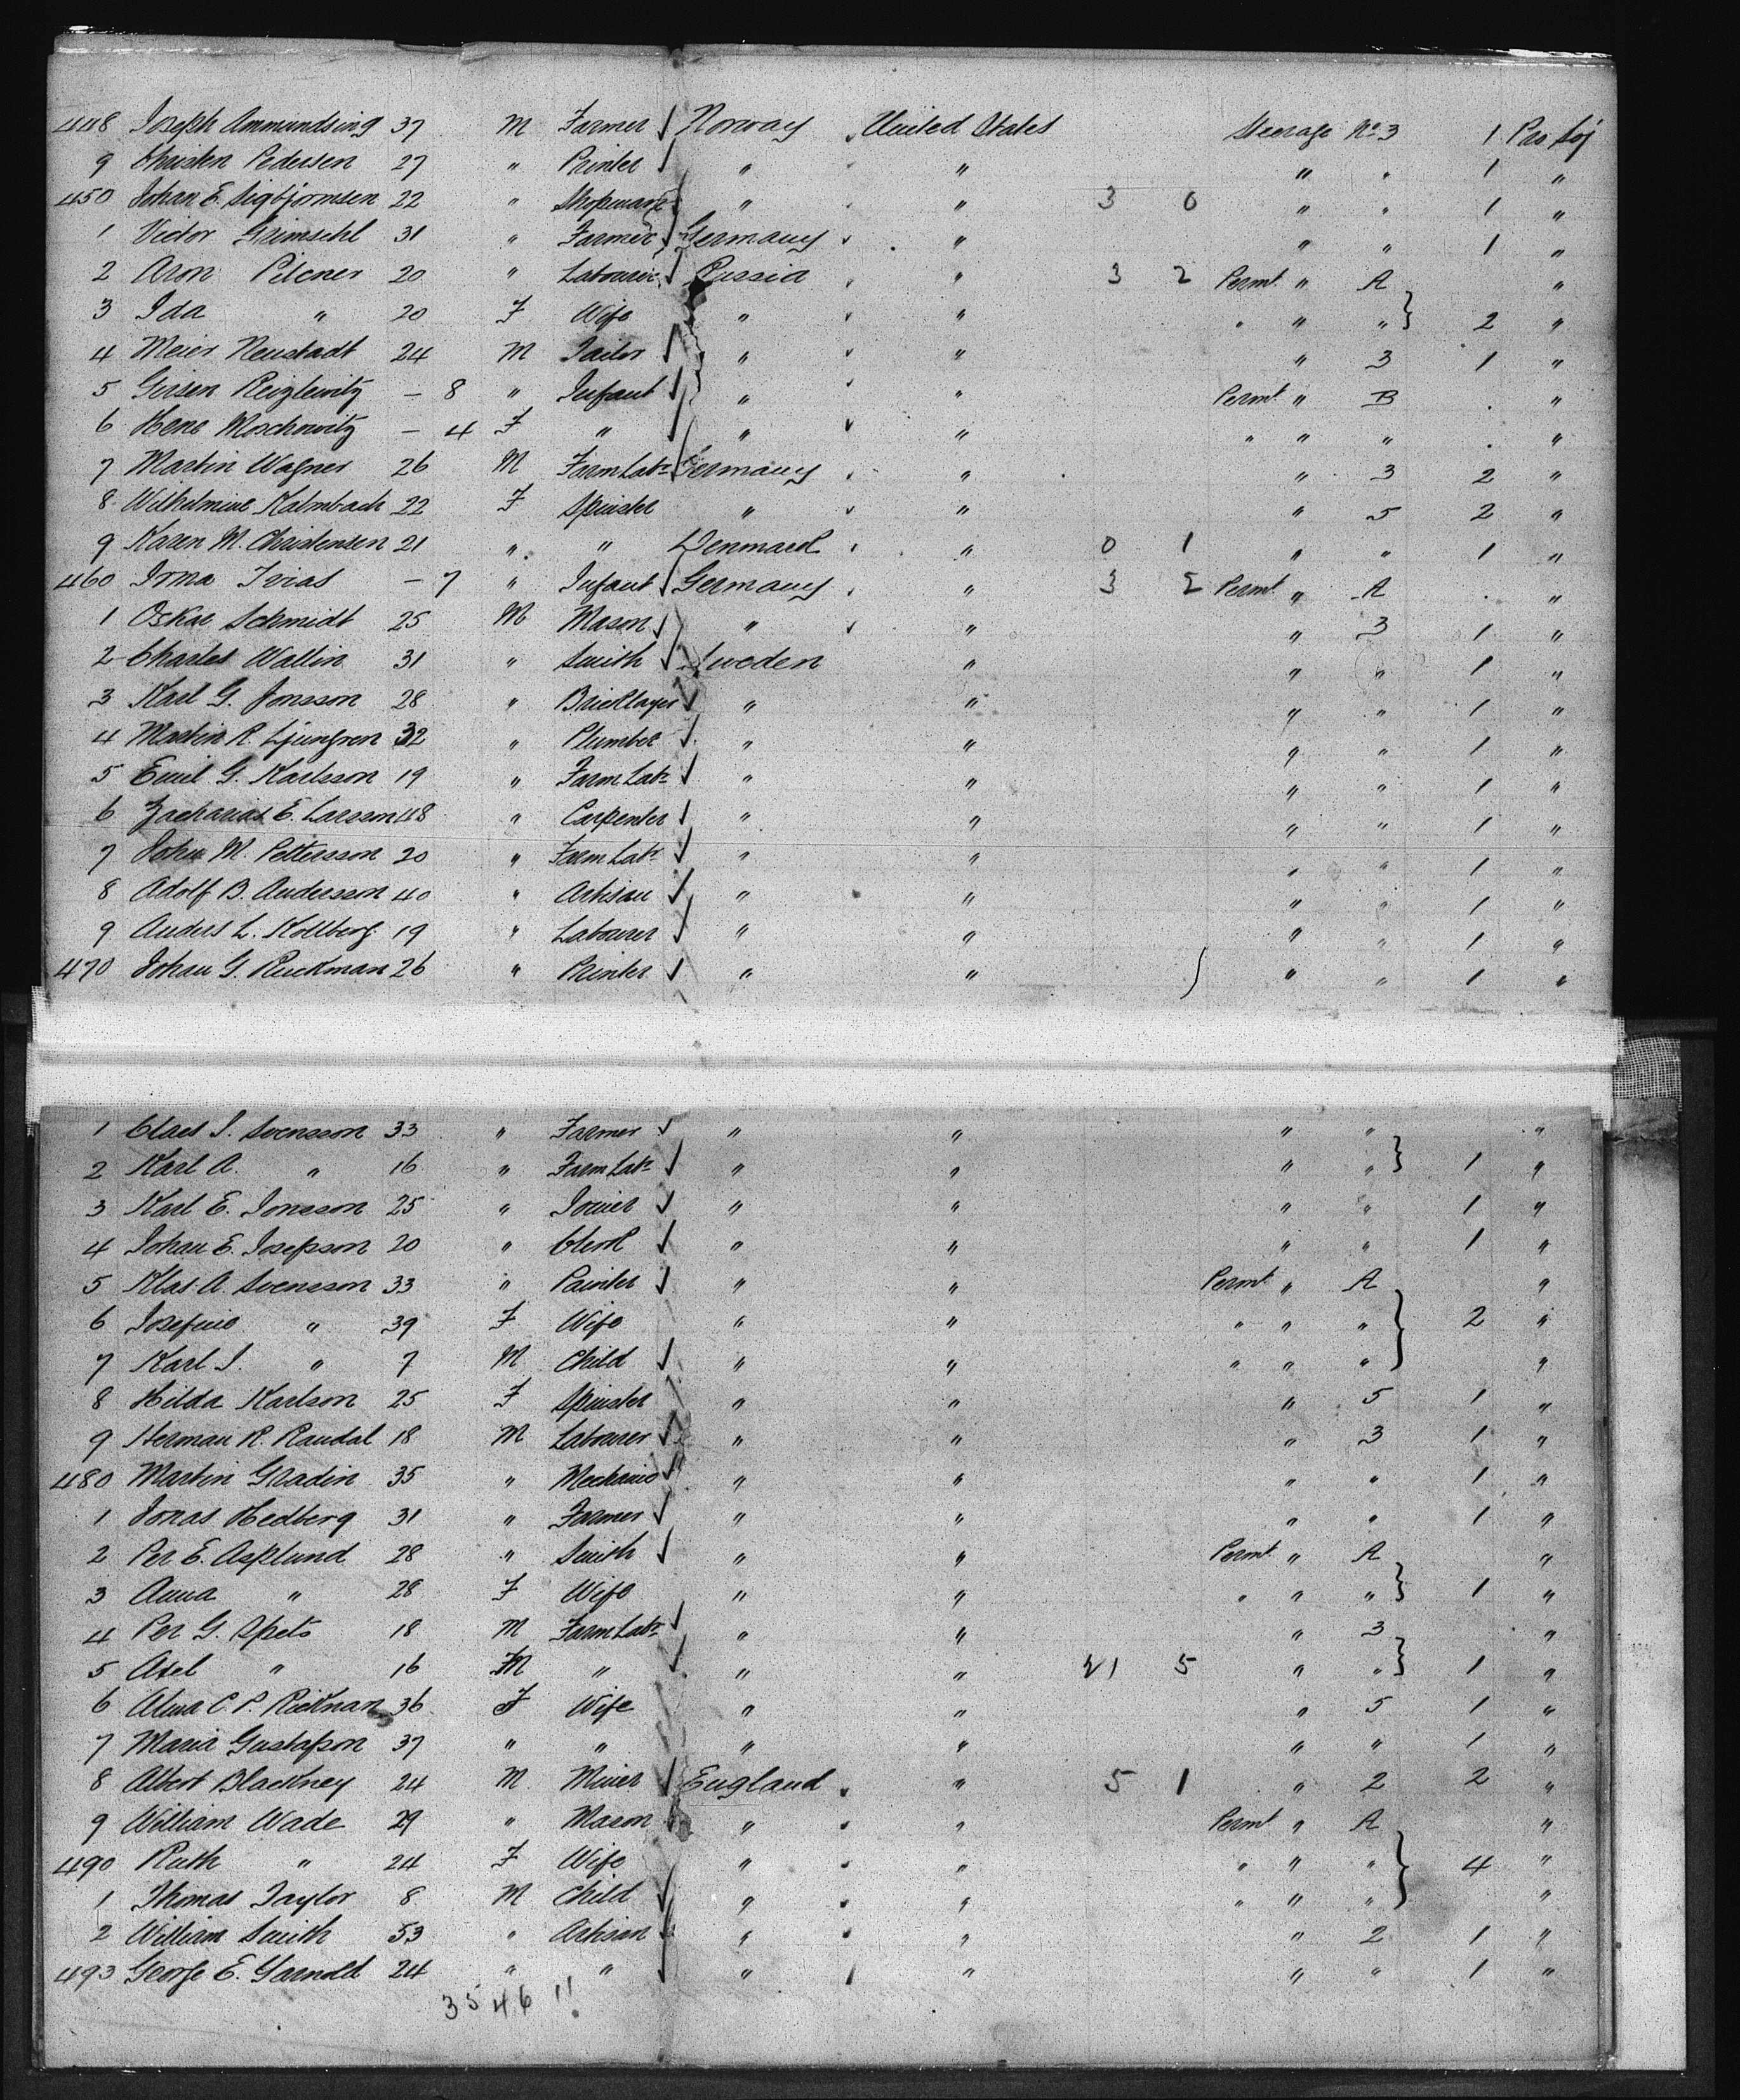 448 Joseph Ammundsing 37 M Farmer Norway United States Steerage No 3 1 Pro Soj
9 Christen Pedersen 27 " Printer " " " " 1 "
450 Johan E. Sigbjornsen 22 " Shopman " " 3 0 " " 1 "
1 Victor Grimsehl 31 " Farmer Germany " " " 1 "
2 Aron Pilener 20 " Labourer Russia " 3 2 Permt. " A "
3 Ida " 20 F Wife " " " " " } 2 "
4 Meier Neustadt 24 M Tailor " " " 3 1 "
5 Girsen Reizlewitz - 8 " Infant " " Permt. " B . "
6 Hene Moschowitz - 4 F " " " " " " . "
7 Martin Wagner 26 M Farm Labr Germany " " 3 2 "
8 Wilhelmine Kalmbach 22 F Spinster " " " 5 2 "
9 Karen M. Christensen 21 " " Denmark " 0 1 " " 1 "
460 Irma Irias - 7 " Infant Germany " 3 2 Permt. " A . "
1 Oskar Schmidt 25 M Mason " " " 3 1 "
2 Charles Wallin 31 " Smith Sweden " " " 1 "
3 Karl G. Jonsson 28 " Bricklayer " " " " 1 "
4 Martin R. Ljungren 32 " Plumber " " " " 1 "
5 Emil G. Karlsson 19 " Farm Labr " " " " 1 "
6 Zacharias E. Larsson 48 " Carpenter " " " " 1 "
7 John M. Pettersson 20 " Farm Labr " " " " 1 "
8 Adolf B. Andersson 40 " Artisan " " " " 1 "
9 Anders L. Kollberg 19 " Labourer " " " " 1 "
470 Johan G. Ruckman 26 " Printer " " " " 1 "
1 Claes J. Svensson 33 " Farmer " " " " "
2 Karl A. " 16 " Farm Labr " " " " } 1 "
3 Karl E. Jonsson 25 " Joiner " " " " 1 "
4 Johan E. Josepson 20 " Clerk " " " " 1 "
5 Klas A. Svensson 33 " Painter " " Permt. " A "
6 Josefine " 39 F Wife " " " " " } 2 "
7 Karl J. " 7 M Child " " " " " "
8 Hilda Karlson 25 F Spinster " " " 5 1 "
9 Herman R. Randal 18 M Labourer " " " 3 1 "
480 Martin Gradin 35 " Mechanic " " " " 1 "
1 Jonas Hedberg 31 " Farmer " " " " 1 "
2 Per E. Asplund 28 " Smith " " Permt. " A "
3 Anna " 28 F Wife " " " " " } 1 "
4 Per G. Spets 18 M Farm Labr " " " 3 "
5 Axel " 16 M " " " 21 5 " " } 1 "
6 Alma C P. Rickman 36 F Wife " " " 5 1 "
7 Maria Gustafson 37 " " " " " " 1 "
8 Albert Blackney 24 M Miner England " 5 1 " 2 2 "
9 William Wade 29 " Mason " " Permt " A "
490 Ruth " 24 F Wife " " " " " } 4 "
1 Thomas Taylor 8 M Child " " " " " "
2 William Smith 53 " Artisan " " " 2 1 "
493 George E. Garnold 24 " " " " " " 1 "
35 46 11